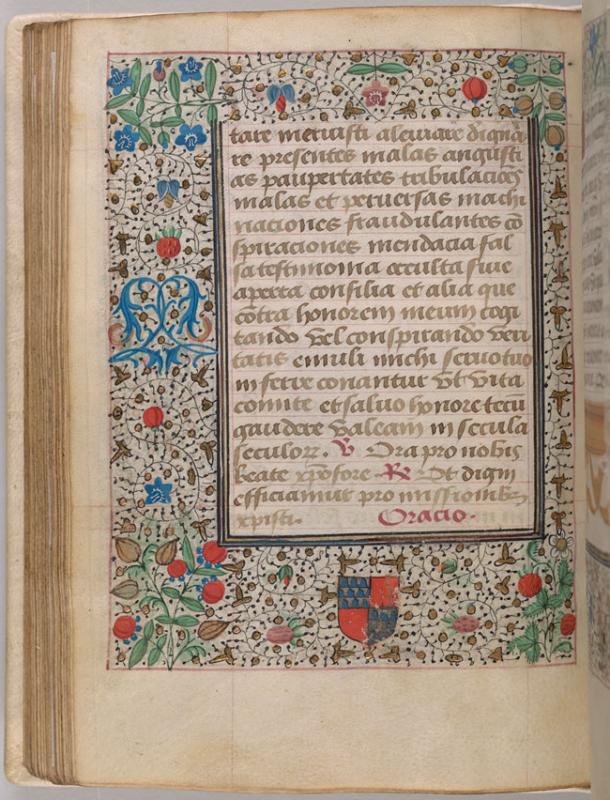 tare meruisti aleuiare digna
re presentes malas angusti
as paupertates tribulacōes
malas et peruersas machi
naciones fraudulantes cō
spiraciones mendacia fal
sa testimonia occulta siue
aperta consilia et alia que
cōtra honorem meum cogi
tando vel conspirando veri
tatis emuli michi seruo tuo
inferre conantur vt vita
comite et saluo honore tecū
gaudere valeam in secula
seculorꝝ. ℣ Ora pro nobis
beate xp̄ofore ℟ Ut digni
efficiamur pro missionibꝫ
xpisti. Oracio.